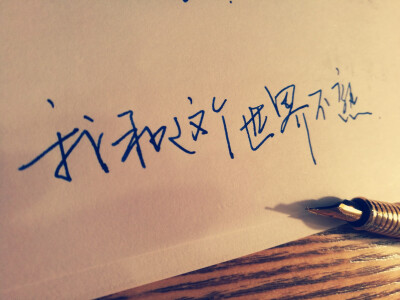 我和这个世界不熟